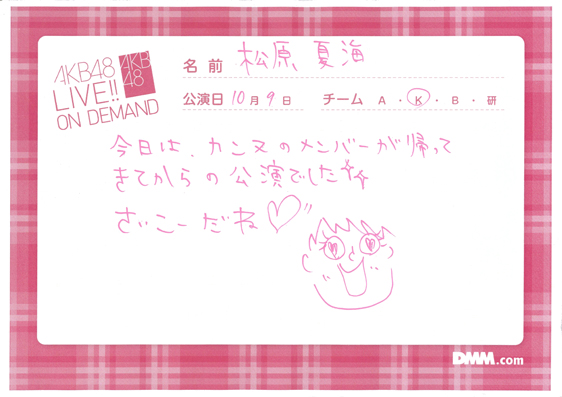 AKB48
LIVE!!
ON DEMAND
AKB
48
名前 松原夏海
公演日 10月9日 チーム A・K・B・研
今日は、カンヌのメンバーが帰って
きてからの公演でした☆☆
さいこーだね♡"
DMM.com